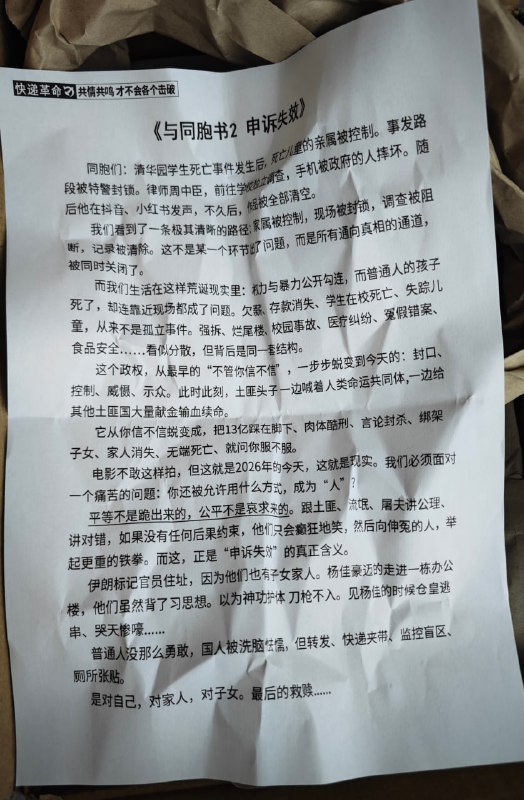 快递革命 共情共鸣 才不会各个击破
《与同胞书2 申诉失效》
同胞们：清华园学生死亡事件发生后，死亡儿童的亲属被控制。事发路
段被特警封锁。律师周中臣，前往学校独立调查，手机被政府的人摔坏。随
后他在抖音、小红书发声，不久后，作品被全部清空。
我们看到了一条极其清晰的路径：家属被控制，现场被封锁，调查被阻
断，记录被清除。这不是某一个环节出了问题，而是所有通向真相的通道，
被同时关闭了。
而我们生活在这样荒诞现实里：权力与暴力公开勾连，而普通人的孩子
死了，却连靠近现场都成了问题。欠薪、存款消失、学生在校死亡、失踪儿
童，从来不是孤立事件。强拆、烂尾楼、校园事故、医疗纠纷、冤假错案、
食品安全……看似分散，但背后是同一套结构。
这个政权，从最早的“不管你信不信”，一步步蜕变到今天的：封口、
控制、威慑、示众。此时此刻，土匪头子一边喊着人类命运共同体，一边给
其他土匪国大量献金输血续命。
它从你信不信蜕变成，把13亿踩在脚下、肉体酷刑、言论封杀、绑架
子女、家人消失、无端死亡、就问你服不服。
电影不敢这样拍，但这就是2026年的今天，这就是现实。我们必须面对
一个痛苦的问题：你还被允许用什么方式，成为“人”？
平等不是跪出来的，公平不是哀求来的。跟土匪、流氓、屠夫讲公理、
讲对错，如果没有任何后果约束，他们只会癫狂地笑，然后向伸冤的人，举
起更重的铁拳。而这，正是“申诉失效”的真正含义。
伊朗标记官员住址，因为他们也有子女家人。杨佳豪迈的走进一栋办公
楼，他们虽然背了习思想。以为神功护体 刀枪不入。见杨佳的时候仓皇逃
串、哭天惨嚎……
普通人没那么勇敢，国人被洗脑怯懦，但转发、快递夹带、监控盲区、
厕所张贴。
是对自己，对家人，对子女。最后的救赎……